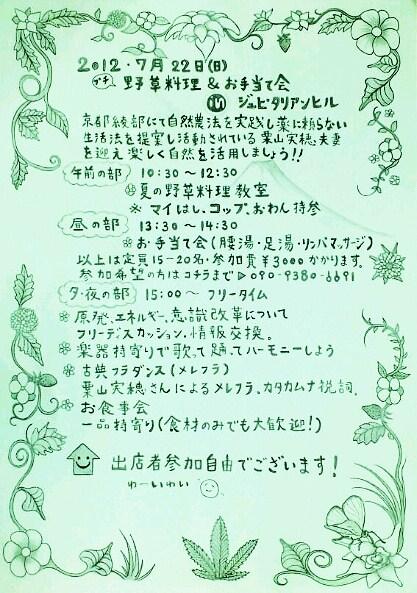 2012・7月22日(日)
プチ 野草料理 & お手当て会
㋰ ジュピタリアンヒル
京都綾部にて自然農法を実践し薬に頼らない
生活法を提案し活動されている 葉山実穂夫妻
を迎え楽しく自然を活用しましょう!!
午前の部 10:30～12:30
夏の野草料理教室
※ マイはし、コップ、おわん持参
昼の部 13:30～14:30
お手当て会(腰湯・足湯・リンパマッサージ)
以上は定員15-20名・参加費¥3000かかります。
参加希望の方はコチラまで▷090-9380-6691
夕・夜の部 15:00～フリータイム
原発、エネルギー、意識改革について
フリーディスカッション、情報交換。
楽器持寄りで歌って踊ってハーモニーしよう
古典フラダンス(メレフラ)
葉山実穂さんによるメレフラ、カタカムナ祝詞。
お食事会
一品持寄り(食材のみでも大歓迎!)
出店者参加自由でございます!
わーいわい